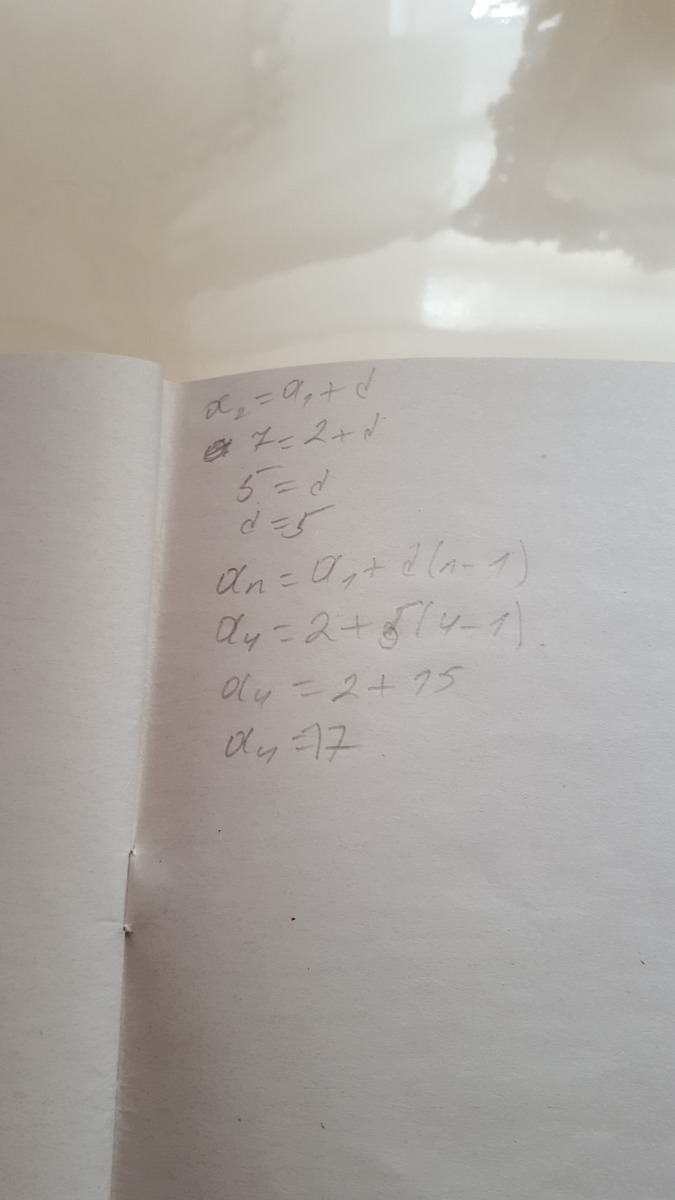 a₂ = a₁ + d
7 = 2 + d
5 = d
d = 5
aₙ = a₁ + d(n - 1)
a₄ = 2 + 5(4 - 1)
a₄ = 2 + 15
a₄ = 17